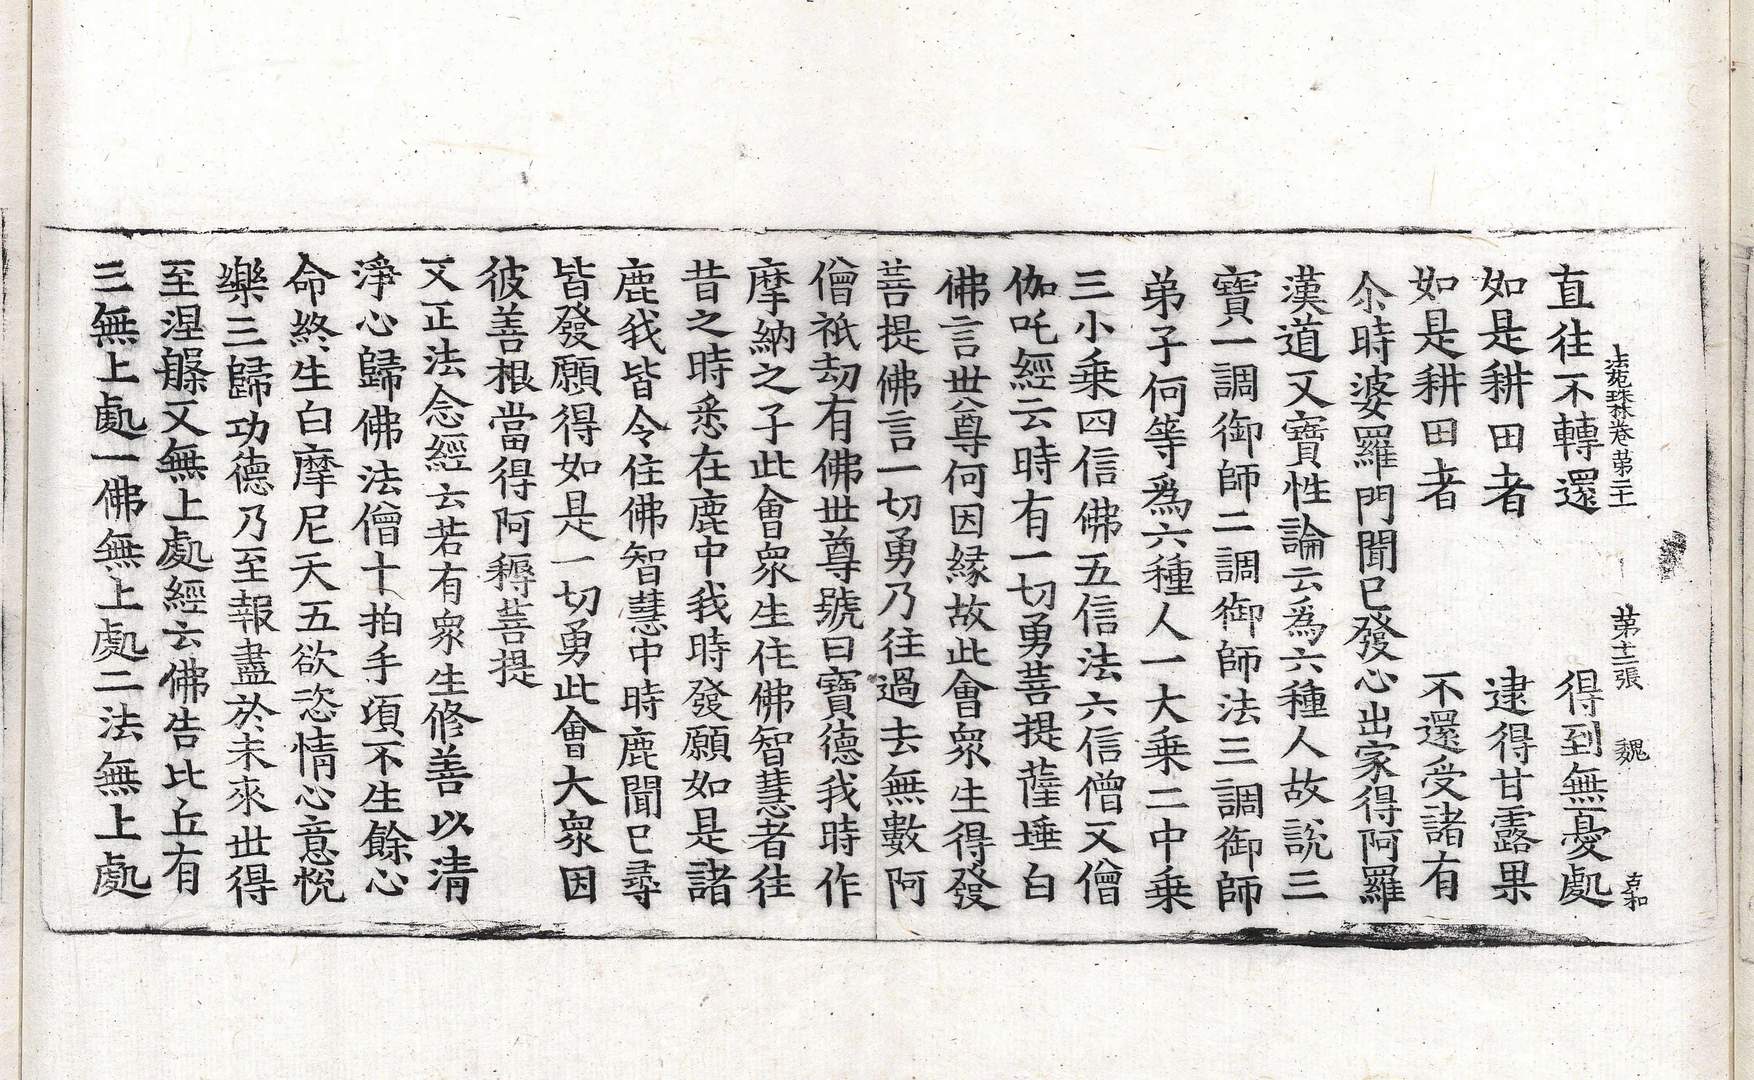 法苑珠林卷第二十 第十二張 魏 志和
直往不轉還 得到無憂處
如是耕田者 逮得甘露果
如是耕田者 不還受諸有
尒時婆羅門聞已發心出家得阿羅
漢道又寶性論云爲六種人故説三
寶一調御師二調御師法三調御師
弟子何等爲六種人一大乗二中乗
三小乗四信佛五信法六信僧又僧
伽吒經云時有一切勇菩提薩埵白
佛言世尊何因縁故此會衆生得發
菩提佛言一切勇乃往過去無數阿
僧祇劫有佛世尊號曰寶德我時作
摩納之子此會衆生住佛智慧者往
昔之時悉在鹿中我時發願如是諸
鹿我皆令住佛智慧中時鹿聞已尋
皆發願得如是一切勇此會大衆因
彼善根當得阿耨菩提
又正法念經云若有衆生修善以清
淨心歸佛法僧十拍手頃不生餘心
命終生白摩尼天五欲恣情心意悅
樂三歸功德乃至報盡於未來世得
至涅槃又無上處經云佛告比丘有
三無上處一佛無上處二法無上處